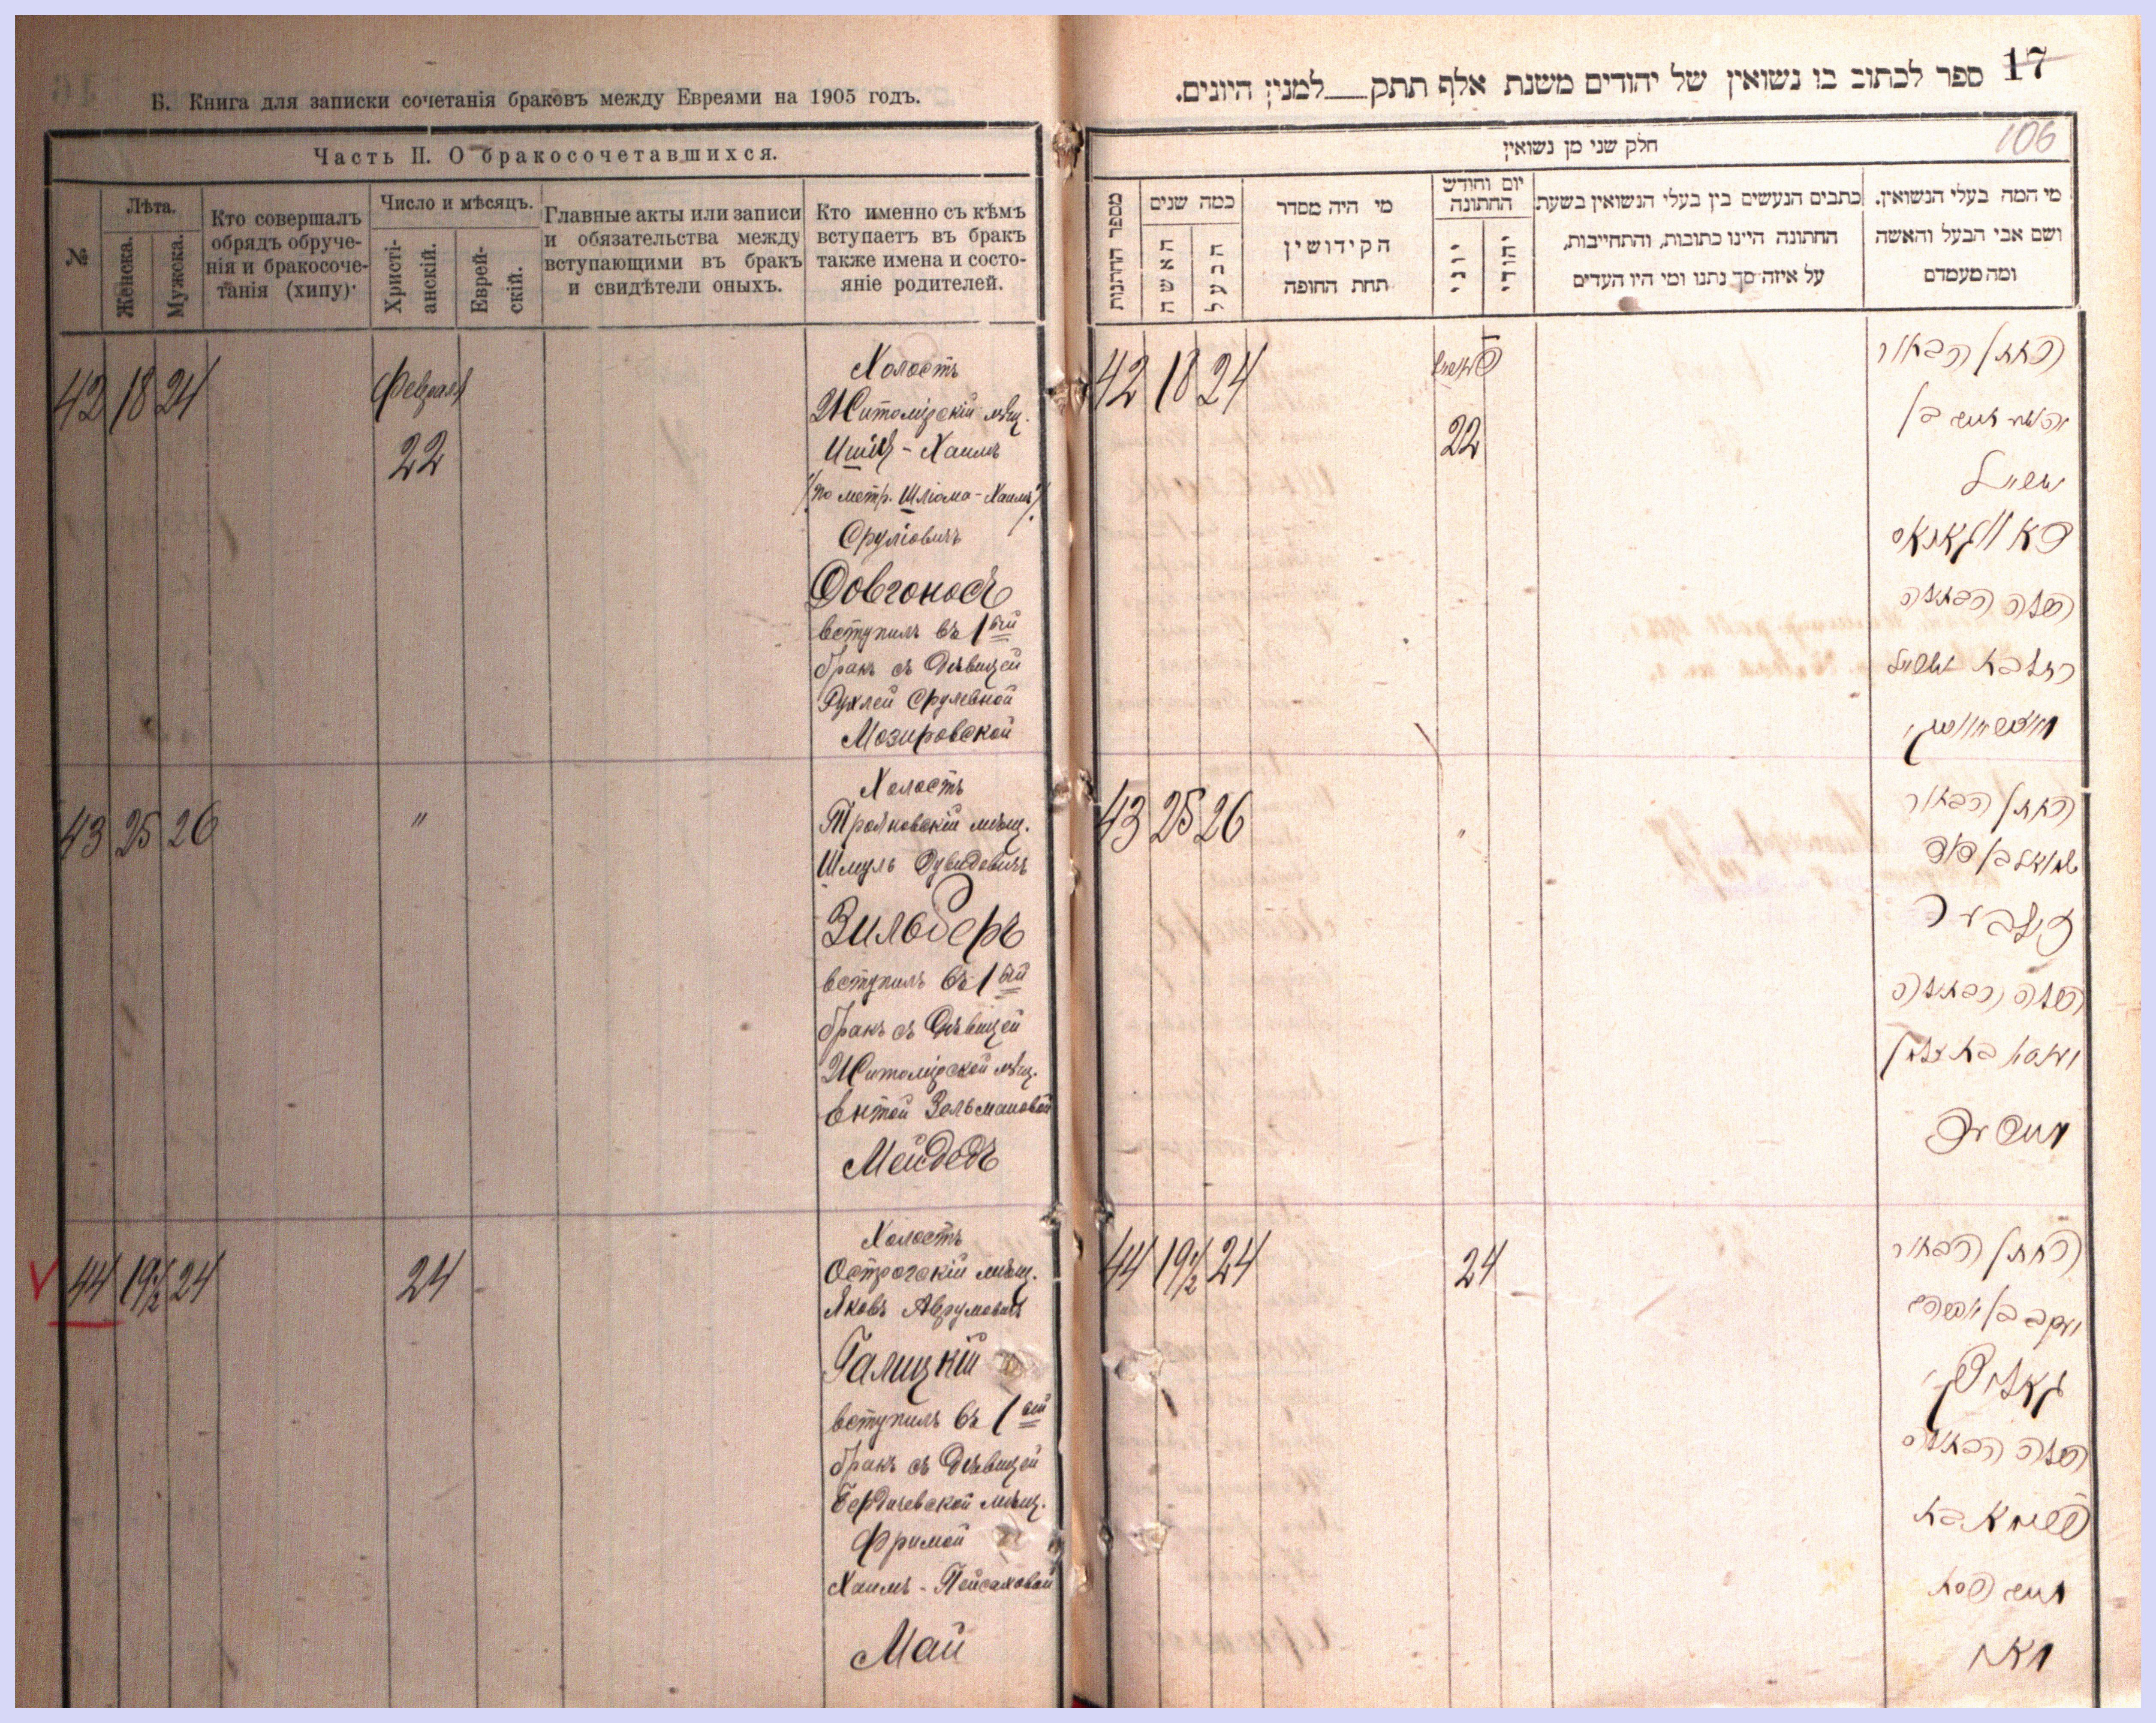 Б. Книга для записки сочетанія браковъ между Евреями на 1905 годъ.
Часть II. О бракосочетавшихся.
№
Лѣта.
Женска.
Мужска.
Кто совершалъ
обрядъ обруче-
нія и бракосоче-
танія (хипу)·
Число и мѣсяцъ.
Христі-
анскій.
Еврей-
скій.
Главные акты или записи
и обязательства между
вступающими въ бракъ
и свидѣтели оныхъ.
Кто именно съ кѣмъ
вступаетъ въ бракъ
также имена и состо-
яніе родителей.
42 18 24
Февраля
22
Холостъ
Житомірскій мѣщ.
Ицикъ - Хаимъ
(по метр. Шліома - Хаимъ)
Сруліовичъ
Довгоносъ
вступилъ въ 1ый
бракъ съ Дѣвицей
Рухлей Срулевной
Мозировской
43 25 26
"
Холостъ
Трояновскій мѣщ.
Шмуль Дувидовичъ
Зильберъ
вступилъ въ 1ый
бракъ съ Дѣвицей
Житомірской мѣщ.
Ентой Зельмановой
Мейдедъ
44 19½ 24
24
Холостъ
Острогскій мѣщ.
Яковъ Аврумовичъ
Галицкій
вступилъ въ 1ый
бракъ съ Дѣвицей
Бердичевской мѣщ.
Фримой
Хаимъ - Пейсаховой
Май
17
ספר לכתוב בו נשואין של יהודים משנת אלף תתק__למנין היונים.
106
חלק שני מן נשואין
מספר החתנות
כמה שנים
האשה
הבעל
מי היה מסדר
הקידושין
תחת החופה
יום וחודש
החתונה
יוני
יהודי
כתבים הנעשים בין בעלי הנשואין בשעת
החתונה היינו כתובות, והתחייבות,
על איזה סך נתנו ומי היו העדים
מי המה בעלי הנשואין.
ושם אבי הבעל והאשה
ומה מעמדם
42 18 24
22
החתן הבחור
43 25 26
"
החתן הבחור
שמואל בן דוד
זילבער
הכלה הבתולה
44 19½ 24
24
החתן הבחור
יעקב בן אברהם
גאליצקי
הכלה הבתולה
פרימא בת
חיים פסח
מאי